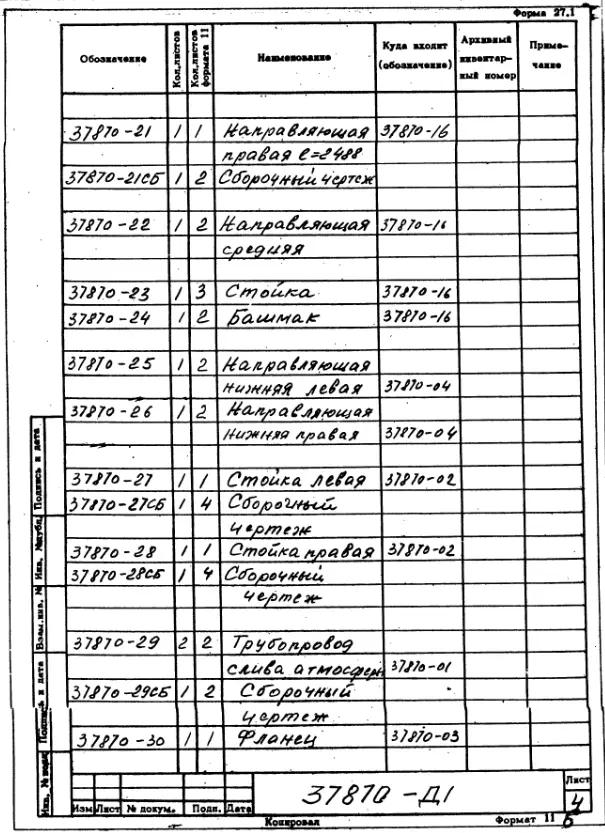 Форма 27.1
Обозначение Кол.листов Кол.листов формата 11 Наименование Куда входит (обозначение) Архивный инвентарный номер Примечание
37870-21 1 1 Направляющая 37870-16
правая l=2488
37870-21СБ 1 2 Сборочный чертеж
37870-22 1 2 Направляющая 37870-16
средняя
37870-23 1 3 Стойка 37870-16
37870-24 1 2 Башмак 37870-16
37870-25 1 2 Направляющая
нижняя левая 37870-04
37870-26 1 2 Направляющая
нижняя правая 37870-04
37870-27 1 1 Стойка левая 37870-02
37870-27СБ 1 4 Сборочный
чертеж
37870-28 1 1 Стойка правая 37870-02
37870-28СБ 1 4 Сборочный
чертеж
37870-29 2 2 Трубопровод
слива атмосферн 37870-01
37870-29СБ 1 2 Сборочный
чертеж
37870-30 1 1 Фланец 37870-03
Подпись и дата
Инв. №дубл.
Взам.инв. №
Подпись и дата
Инв. № подл.
Изм Лист № докум. Подп. Дата
37870-Д1
Лист
4
Копировал Формат 11